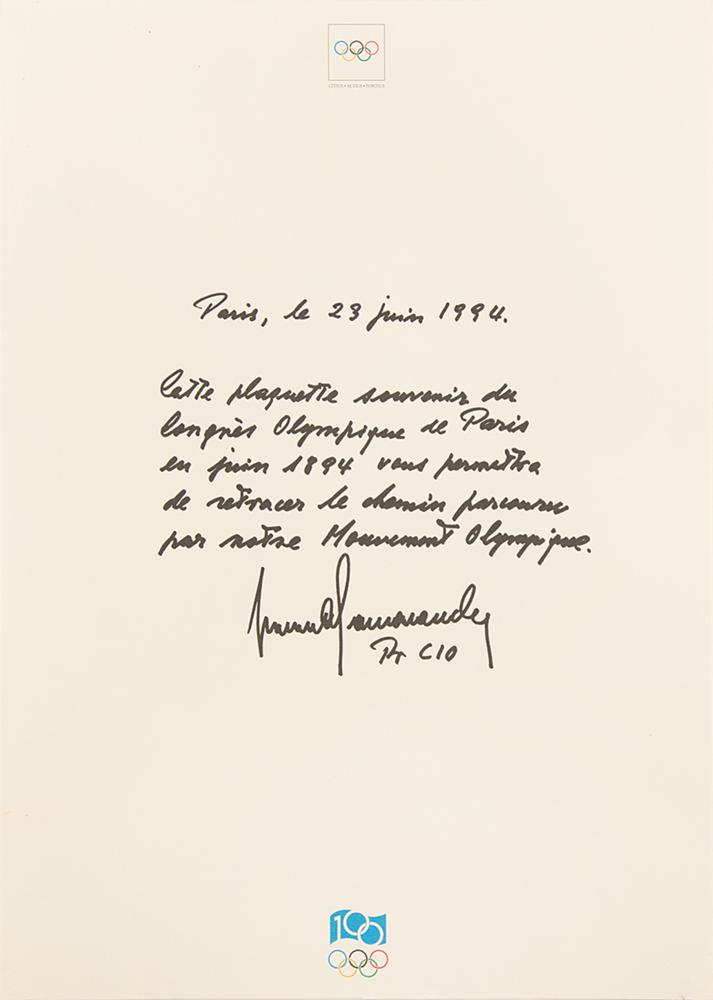 CITIUS • ALTIUS • FORTIUS
Paris, le 23 juin 1994.
Cette plaquette souvenir du
Congrès Olympique de Paris
en juin 1894 vous permettra
de retracer le chemin parcouru
par notre Mouvement Olympique.
Pt CIO
100